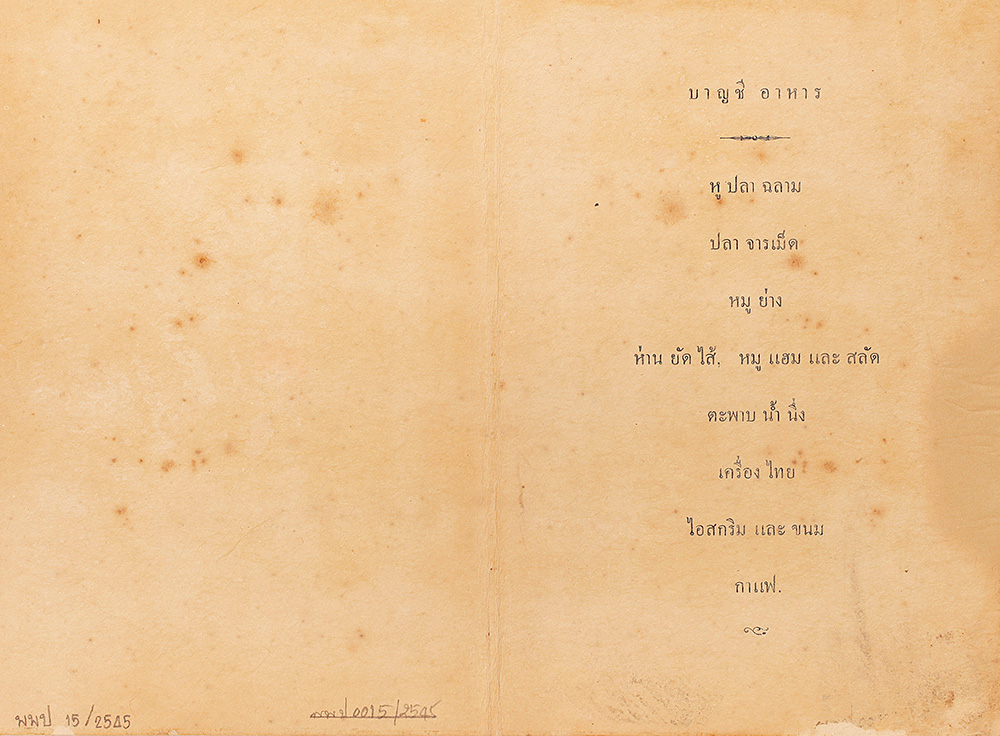 บาญชี อาหาร
หู ปลา ฉลาม
ปลา จารเม็ด
หมู ย่าง
ห่าน ยัด ไส้, หมู แฮม และ สลัด
ตะพาบ น้ำ นึ่ง
เครื่อง ไทย
ไอสกริม และ ขนม
กาแฟ.
พพป 15/2545
พพป 0015/2545